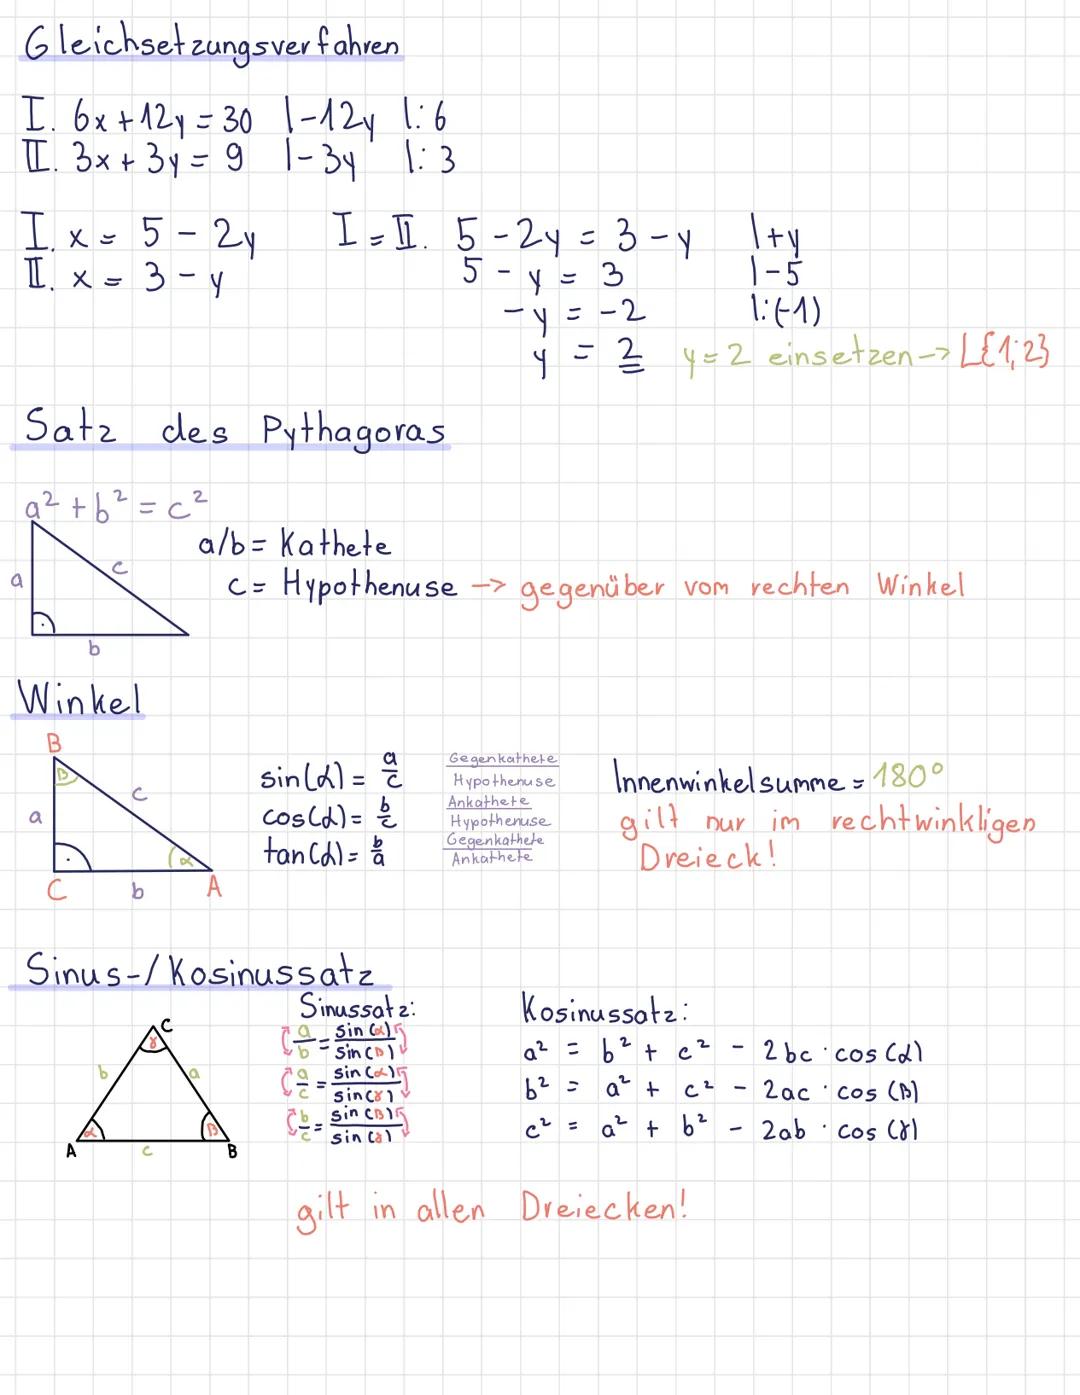 Gleichsetzungsverfahren
I. 6x + 12y = 30 |-12y |:6
II. 3x + 3y = 9 |-3y |:3
I. x = 5 - 2y I = II. 5 - 2y = 3 - y |+y
II. x = 3 - y 5 - y = 3 |-5
-y = -2 |:(-1)
y = 2 y = 2 einsetzen -> L{1;2}
Satz des Pythagoras
a² + b² = c²
a/b = Kathete
c = Hypothenuse -> gegenüber vom rechten Winkel
a
c
b
Winkel
B
β
a
c
α
C
b
A
sin(α) = a/c Gegenkathete/Hypothenuse
cos(α) = b/c Ankathete/Hypothenuse
tan(α) = b/a Gegenkathete/Ankathete
Innenwinkelsumme = 180°
gilt nur im rechtwinkligen
Dreieck!
Sinus-/Kosinussatz
C
γ
b
a
α
β
A
c
B
Sinussatz:
a/b = sin(α)/sin(β)
a/c = sin(α)/sin(γ)
b/c = sin(β)/sin(γ)
Kosinussatz:
a² = b² + c² - 2bc · cos(α)
b² = a² + c² - 2ac · cos(β)
c² = a² + b² - 2ab · cos(γ)
gilt in allen Dreiecken!